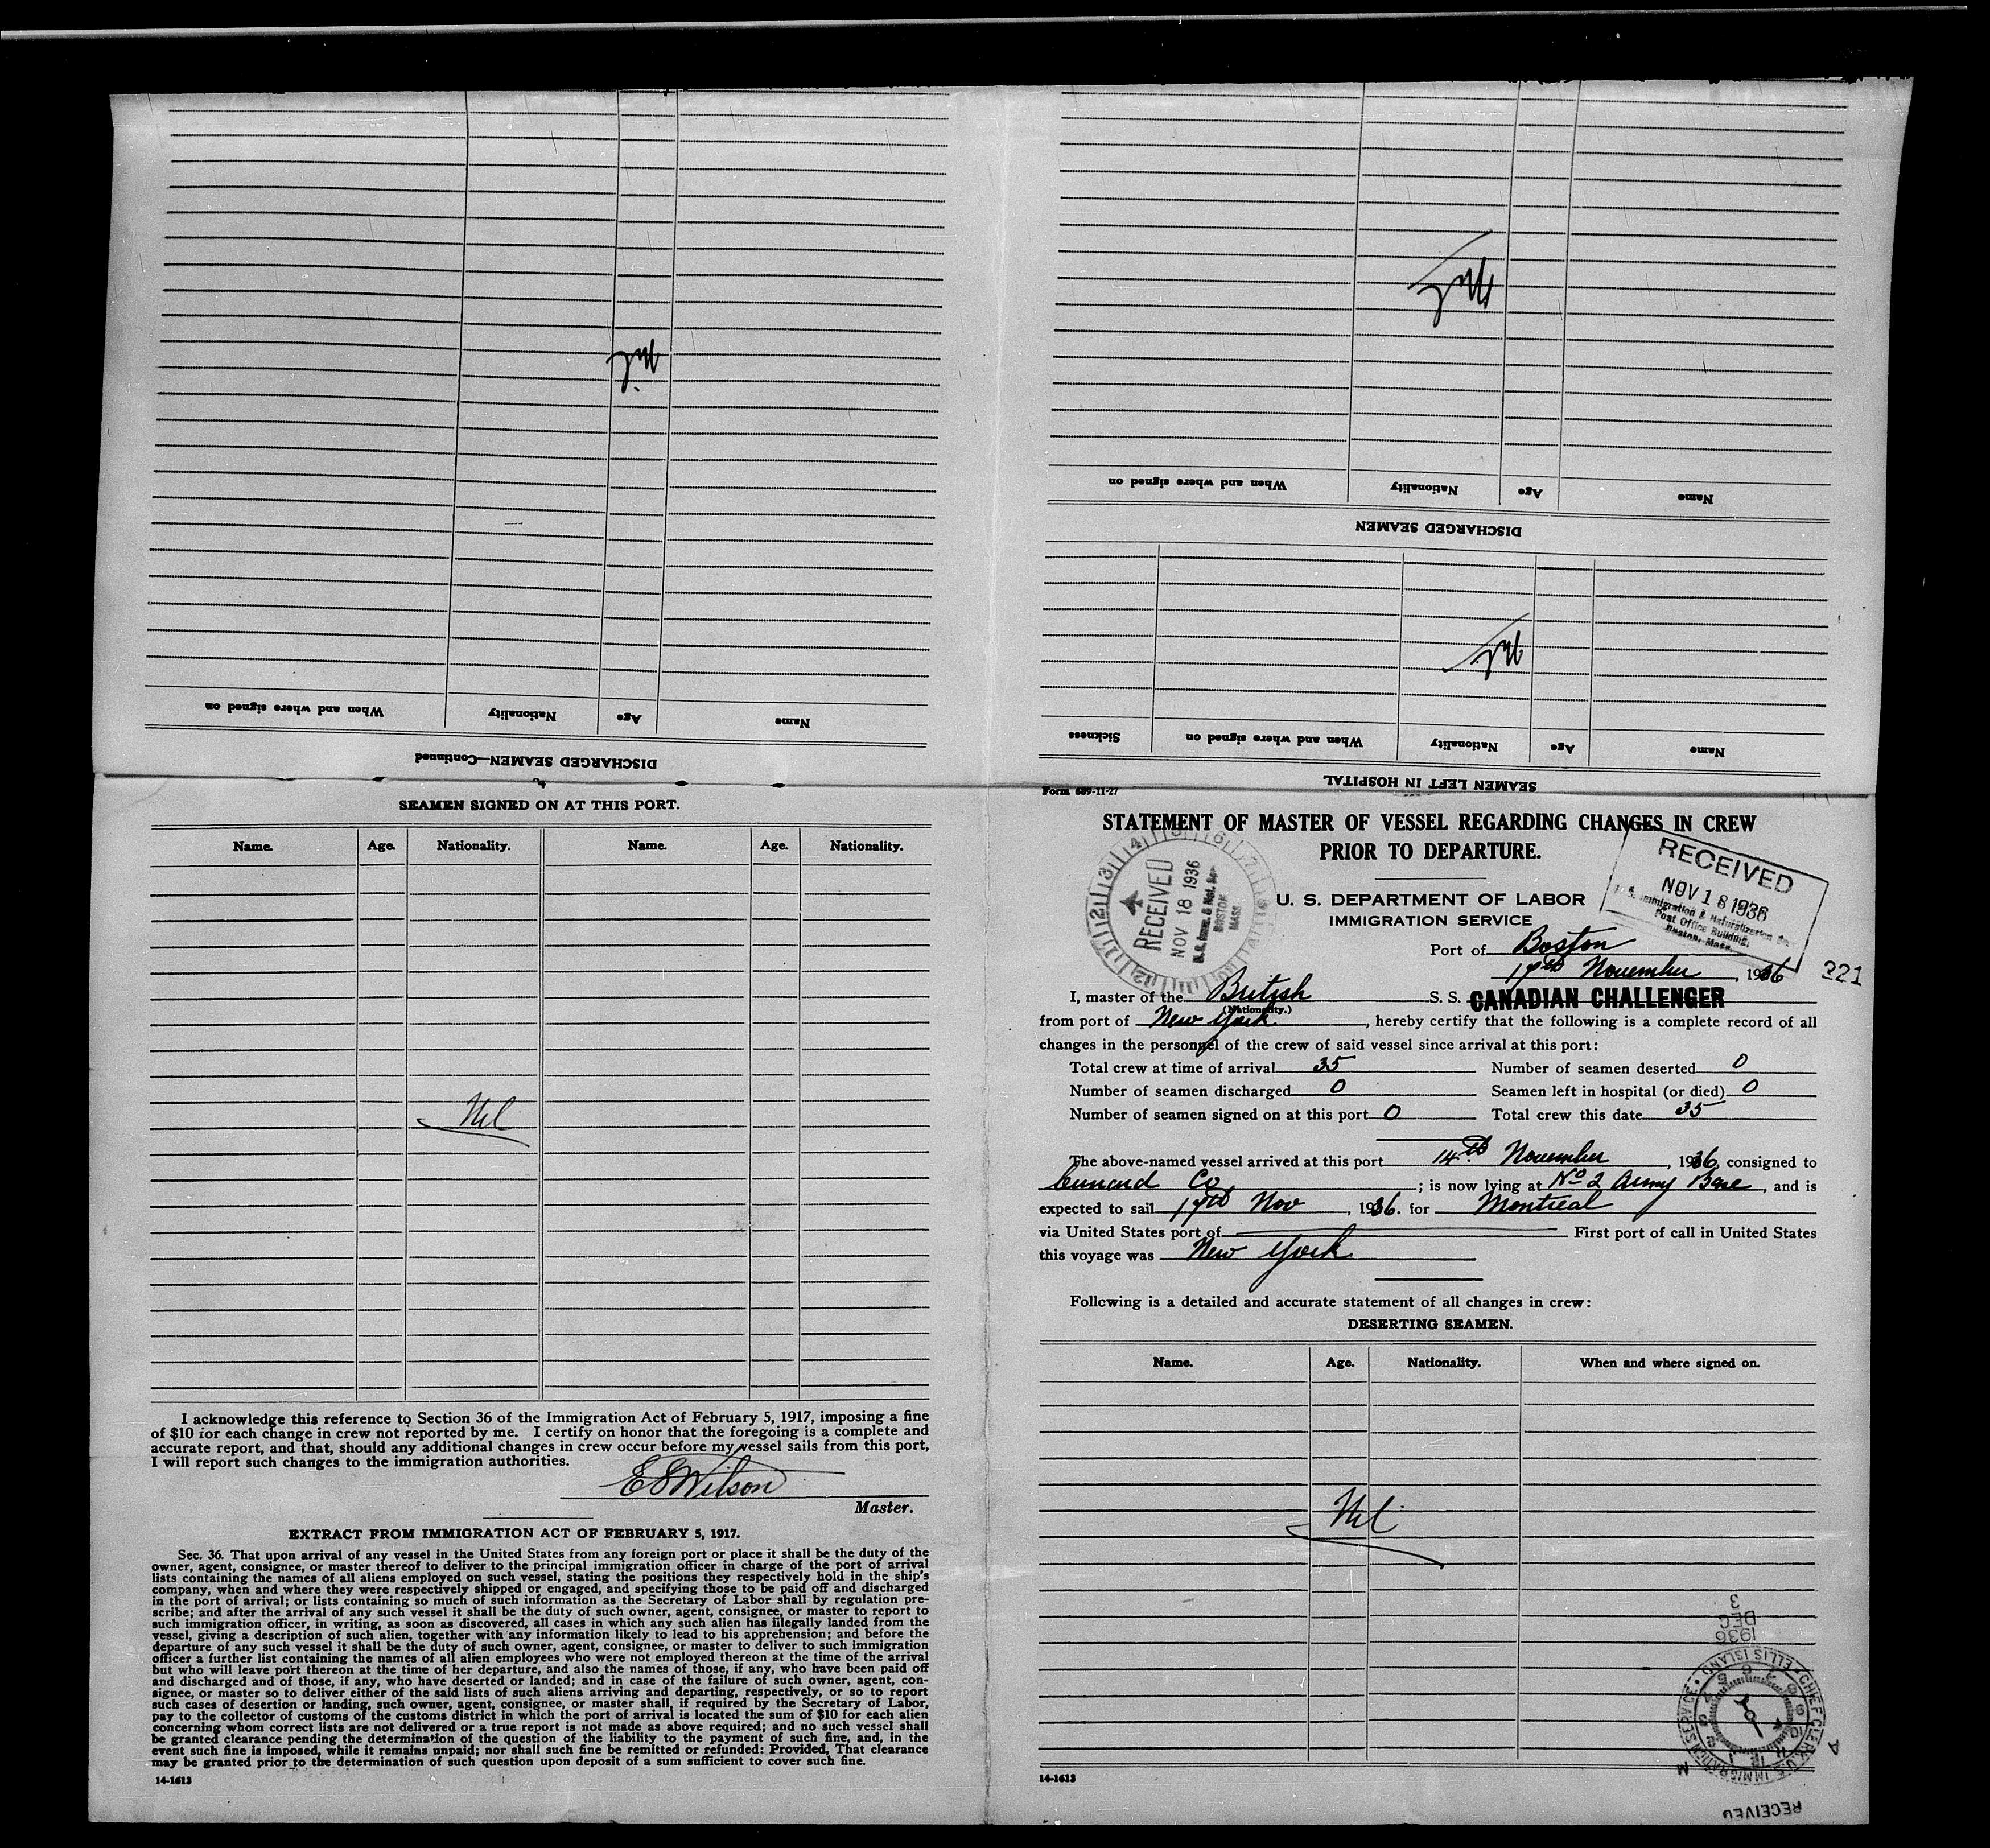 DISCHARGED SEAMEN—Continued
Name Age Nationality When and where signed on
Nil
SEAMEN LEFT IN HOSPITAL
Name Age Nationality When and where signed on Sickness
Nil
DISCHARGED SEAMEN
Name Age Nationality When and where signed on
Nil
SEAMEN SIGNED ON AT THIS PORT.
Name. Age. Nationality. Name. Age. Nationality.
Nil
I acknowledge this reference to Section 36 of the Immigration Act of February 5, 1917, imposing a fine
of $10 for each change in crew not reported by me. I certify on honor that the foregoing is a complete and
accurate report, and that, should any additional changes in crew occur before my vessel sails from this port,
I will report such changes to the immigration authorities.
Wilson
Master.
EXTRACT FROM IMMIGRATION ACT OF FEBRUARY 5, 1917.
Sec. 36. That upon arrival of any vessel in the United States from any foreign port or place it shall be the duty of the
owner, agent, consignee, or master thereof to deliver to the principal immigration officer in charge of the port of arrival
lists containing the names of all aliens employed on such vessel, stating the positions they respectively hold in the ship's
company, when and where they were respectively shipped or engaged, and specifying those to be paid off and discharged
in the port of arrival; or lists containing so much of such information as the Secretary of Labor shall by regulation pre-
scribe; and after the arrival of any such vessel it shall be the duty of such owner, agent, consignee, or master to report to
such immigration officer, in writing, as soon as discovered, all cases in which any such alien has illegally landed from the
vessel, giving a description of such alien, together with any information likely to lead to his apprehension; and before the
departure of any such vessel it shall be the duty of such owner, agent, consignee, or master to deliver to such immigration
officer a further list containing the names of all alien employees who were not employed thereon at the time of the arrival
but who will leave port thereon at the time of her departure, and also the names of those, if any, who have been paid off
and discharged and of those, if any, who have deserted or landed; and in case of the failure of such owner, agent, con-
signee, or master so to deliver either of the said lists of such aliens arriving and departing, respectively, or so to report
such cases of desertion or landing, such owner, agent, consignee, or master shall, if required by the Secretary of Labor,
pay to the collector of customs of the customs district in which the port of arrival is located the sum of $10 for each alien
concerning whom correct lists are not delivered or a true report is not made as above required; and no such vessel shall
be granted clearance pending the determination of the question of the liability to the payment of such fine, and, in the
event such fine is imposed, while it remains unpaid; nor shall such fine be remitted or refunded: Provided, That clearance
may be granted prior to the determination of such question upon deposit of a sum sufficient to cover such fine.
14-1613
Form 689-11-27
STATEMENT OF MASTER OF VESSEL REGARDING CHANGES IN CREW
PRIOR TO DEPARTURE.
RECEIVED
NOV 18 1936
BOSTON
MASS
U. S. DEPARTMENT OF LABOR
IMMIGRATION SERVICE
RECEIVED
NOV 18 1936
U.S. Immigration & Naturalization
Post Office Building,
Boston, Mass.
Port of Boston
17th November, 1936
221
I, master of the British S. S. CANADIAN CHALLENGER
(Nationality.)
from port of New York, hereby certify that the following is a complete record of all
changes in the personnel of the crew of said vessel since arrival at this port:
Total crew at time of arrival 35 Number of seamen deserted 0
Number of seamen discharged 0 Seamen left in hospital (or died) 0
Number of seamen signed on at this port 0 Total crew this date 35
The above-named vessel arrived at this port 14th November, 1936, consigned to
Cunard Co; is now lying at No 2 Army Base, and is
expected to sail 17th Nov, 1936. for Montreal
via United States port of First port of call in United States
this voyage was New York
Following is a detailed and accurate statement of all changes in crew:
DESERTING SEAMEN.
Name. Age. Nationality. When and where signed on.
Nil
RECEIVED
CHIEF CLERK U.S. IMMIGRATION SERVICE · ELLIS ISLAND
1936
DEC
3
14-1613